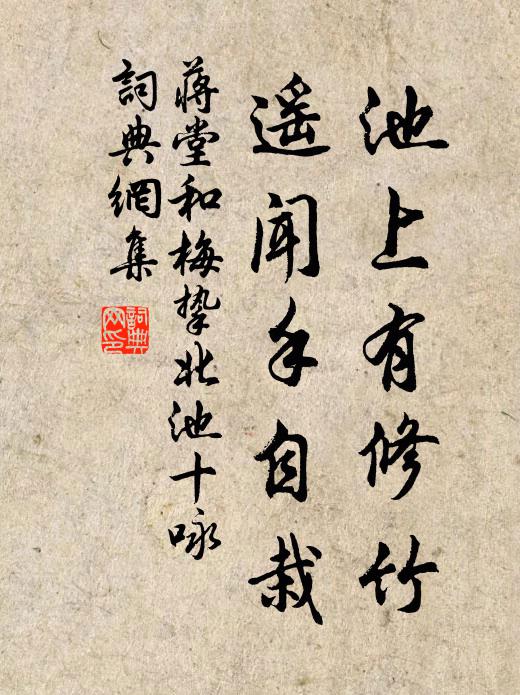 池上有修竹
遥闻手自栽
蒋堂和梅挚北池十咏
词典網集
詞典
网印